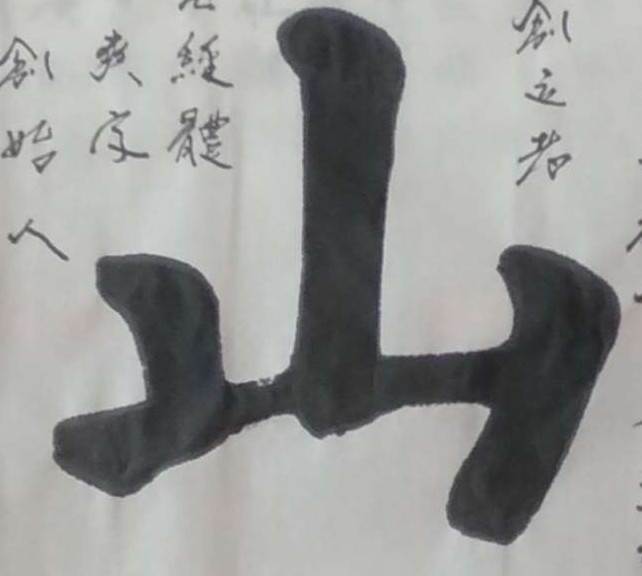 創立者
山
經體
爽字
創始人